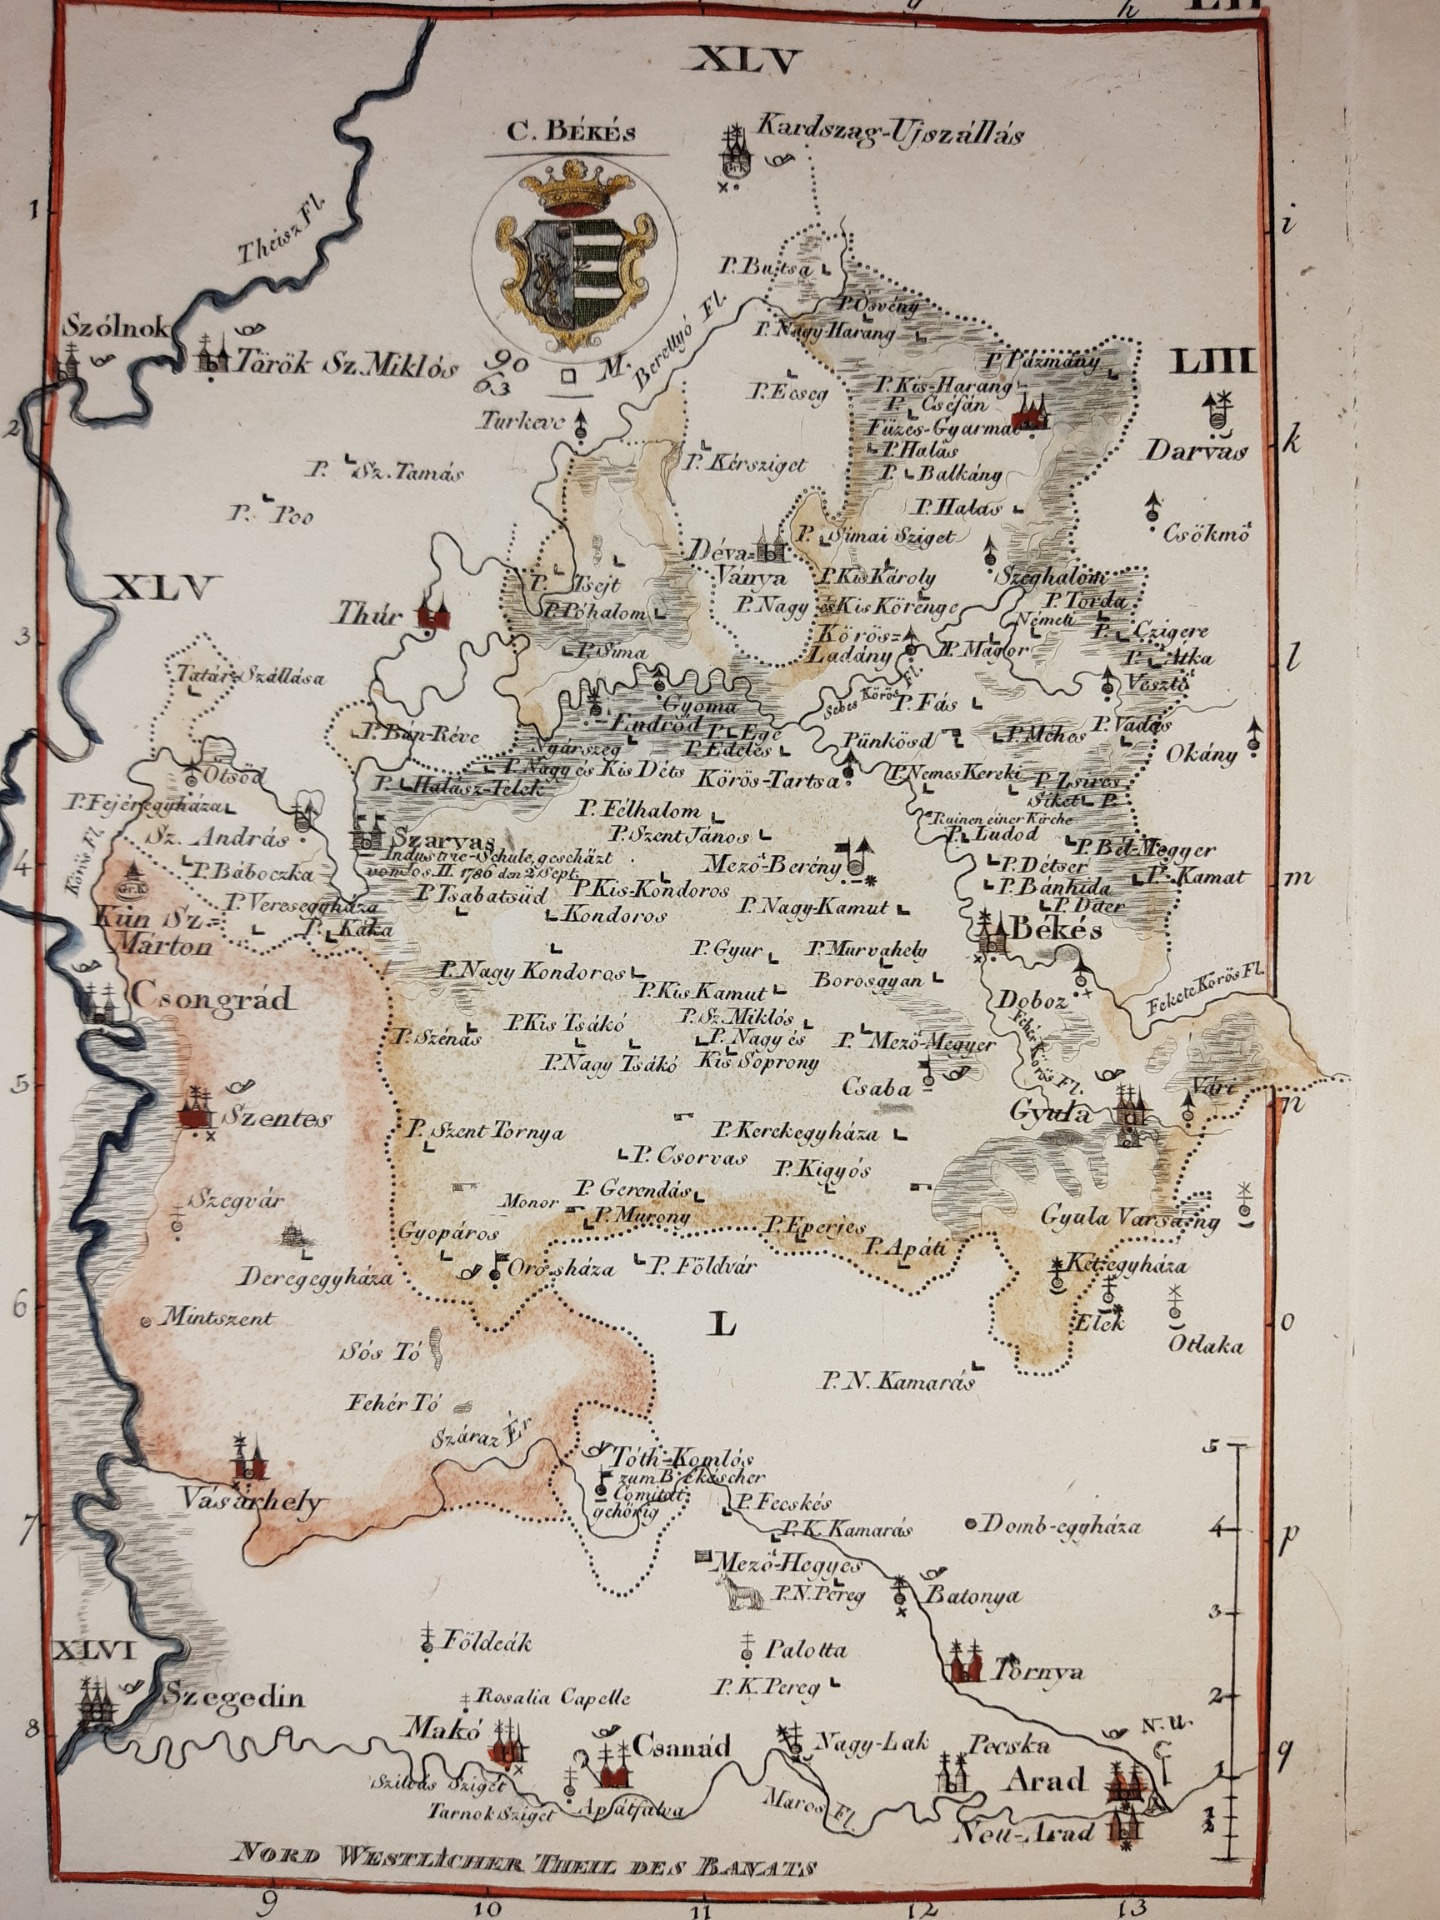 h
LII
XLV
C. BÉKÉS
Kardszag-Ujszállás
GrK
1
i
Theisz Fl.
P. Butsa
P. Ösvény
P. Nagy-Harang
Szólnok
Török Sz. Miklós
90
63
M.
Berettyó Fl.
P. Pázmány
LIII
P. Ecseg
P. Kis-Harang
P. Cséfán
Turkeve
Füzes-Gyarmat
2
k
Darvas
P. Sz. Tamás
P. Kérsziget
P. Halás
P. Balkány
P. Poo
P. Halas
Csökmö
P. Simai Sziget
Déva-
Ványa
XLV
P. Tsejt
P. Kis Károly
Szeghalom
Thúr
P. Póhalom
P. Nagy és Kis Körenge
P. Torda
Németi
3
P. Czigere
P. Sima
Körös-
Ladány
P. Mágor
P. Atka
l
Tatár-Szállása
Vésztö
Sebes Körös Fl.
P. Fás
Gyoma
Endröd
P. Ege
P. Bán-Réve
Nyárszeg
P. Edeles
Pünkösd
P. Méhes
P. Vadás
Okány
Otsöd
P. Nagy és Kis Déts
Körös-Tartsa
P. Nemes Kereki
P. Zsíros
P. Halász-Telek
Siket
P.
P. Fejéregyháza
P. Félhalom
Ruinen einer Kirche
Sz. András
Szarvas
P. Szent János
P. Ludod
Körös Fl.
Industrie-Schule, geschäzt
vom Jos. II. 1786 den 2 Sept.
Mezö-Berény
P. Bél-Megyer
4
P. Báboczka
P. Détser
P. Kamat
m
Gr. K
P. Tsabatsüd
P. Kis-Kondoros
P. Bánhida
P. Veresegyháza
Kondoros
P. Nagy-Kamut
P. Dáer
Kún Sz-
Márton
P. Káka
Békés
P. Gyur
P. Murvahely
P. Nagy Kondoros
Borosgyan
P. Kis Kamut
Csongrád
Doboz
Fekete Körös Fl.
P. Szénás
P. Kis Tsákó
P. Sz. Miklós
P. Nagy és
Kis Soprony
P. Mezö-Megyer
Fehér Körös Fl.
P. Nagy Tsákó
5
Csaba
Vári
n
Gyula
Szentes
P. Szent Tornya
P. Kerekegyháza
P. Csorvas
P. Kigyós
Szegvár
Monor
P. Gerendás
P. Murony
Gyula Varsáng
Gyopáros
P. Eperjes
P. Apáti
Orosháza
P. Földvár
Kétegyháza
Deregegyháza
6
Mintszent
L
Elek
o
Otlaka
Sós Tó
P. N. Kamarás
Fehér Tó
Száraz Ér
5
Tóth-Komlós
zum Békéscher
Comitat
gehörig
Vásárhely
P. Fecskés
7
P. K. Kamarás
Domb-egyháza
4
p
Mezö-Hegyes
P. N. Pereg
Batonya
3
XLVI
Földeák
Palotta
Tornya
Szegedin
Rosalia Capelle
P. K. Pereg
2
8
Makó
Csanád
Nagy-Lak
Pecska
N. U.
q
Szilvás Sziget
Arad
1
Tarnok Sziget
Apátfalva
Maros Fl.
Neu-Arad
NORD WESTLICHER THEIL DES BANATS
9
10
11
12
13